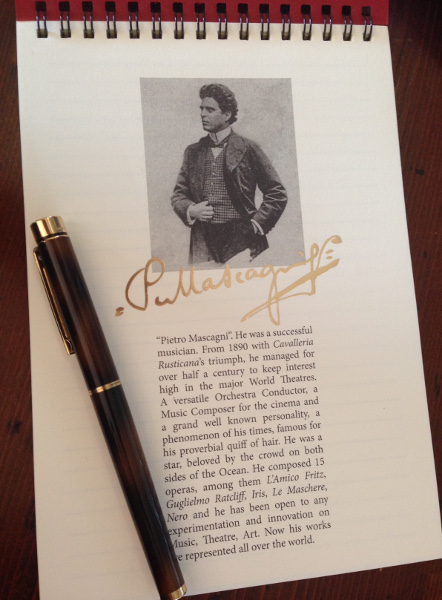 P. Mascagni
"Pietro Mascagni". He was a successful
musician. From 1890 with Cavalleria
Rusticana's triumph, he managed for
over half a century to keep interest
high in the major World Theatres.
A versatile Orchestra Conductor, a
Music Composer for the cinema and
a grand well known personality, a
phenomenon of his times, famous for
his proverbial quiff of hair. He was a
star, beloved by the crowd on both
sides of the Ocean. He composed 15
operas, among them L'Amico Fritz,
Guglielmo Ratcliff, Iris, Le Maschere,
Nero and he has been open to any
experimentation and innovation on
Music, Theatre, Art. Now his works
are represented all over the world.